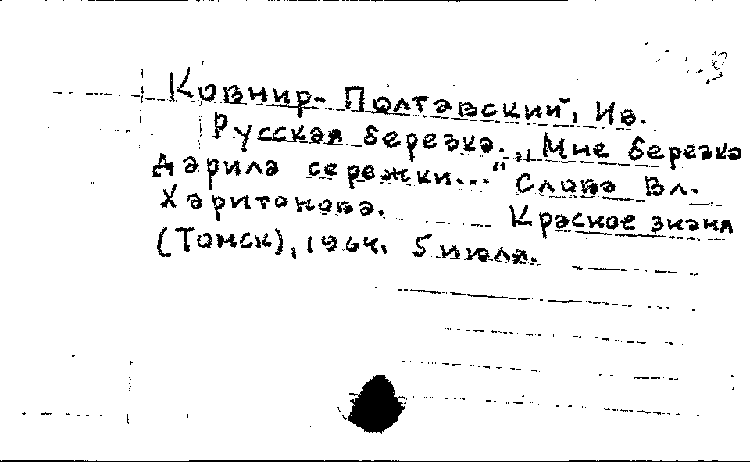 Ковнир-Полтавский, Ив.
Русская березка. „Мне березка
дарила сережки..." Слова Вл.
Харитонова. Красное знамя
(Томск), 1964, 5 июля.